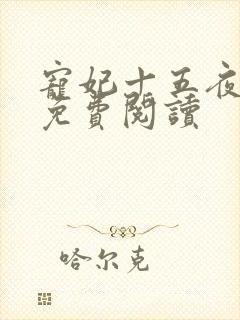 寵妃十五夜
免費閱讀
哈尔克